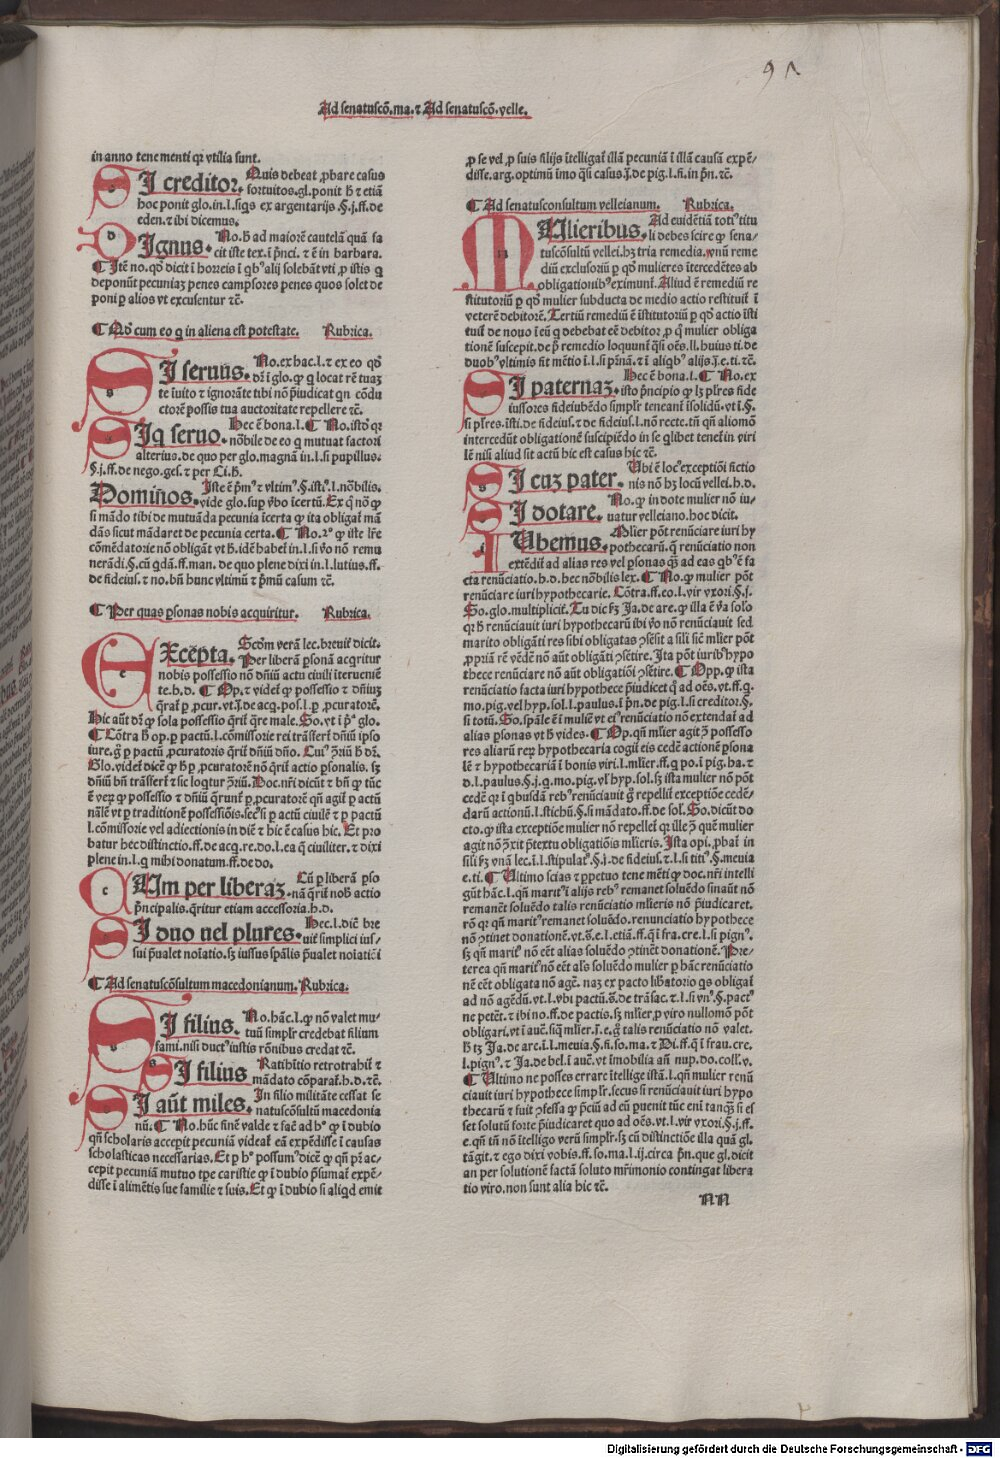 91
Ad senatuscō.ma.⁊ Ad senatuscō.velle.
in anno tene menti qꝛ vtilia sunt.
SI creditor. Quis debeat ꝓbare casus
fortuitos.gl.ponit h̄ ⁊ etiā
hoc ponit glo.in.l.siqs ex argentarijs.§.j.ff.de
eden.⁊ ibi dicemus.
PIgnus. No.h̄ ad maiorē cautelā quā fa
cit iste tex.ī pn̄ci.⁊ ē in barbara.
¶ Itē no.qd̄ dicit ī horreis ī qbꝰ alij solebāt vti ꝓ istis q
deponūt pecuniaꝫ penes campsores penes quos solet de
poni ꝑ alios vt excusentur ⁊c̄.
¶ Qd̄ cum eo q in aliena est potestate. Rubrica.
SI seruus. No.ex hac.l.⁊ ex eo qd̄
dī ī glo.ꝙ q locat rē tuaꝫ
te īuito ⁊ ignorāte tibi nō p̄iudicat qn cōdu
ctorē possis tua auctoritate repellere ⁊c̄.
SIq seruo. Hec ē bona.l.¶ No.istō qꝛ
nōbile de eo q mutuat factori
alterius.de quo per glo.magnā in.l.si pupillus.
§.j.ff.de nego.ges.⁊ per Ci.h̄.
Domin̄os. Iste ē p̄mꝰ ⁊ vltimꝰ.§.istiꝰ.l.nōbilis.
vide glo.sup v̄bo īcertū.Ex q nō ꝙ
si mādo tibi de mutuāda pecunia īcerta ꝙ ita obligat̄ mā
dās sicut mādaret de pecunia certa.¶ No.2ꝰ ꝙ iste lr̄e
cōmēdatorie nō obligāt vt h̄.idē habeſ in.l.si v̄o nō remu
nerādi.§.cū qdā.ff.man.de quo plene dixi in.l.lutius.ff.
de fideius.⁊ no.bn̄ hunc vltimū ⁊ p̄mū casum ⁊c̄.
¶ Per quas ꝑsonas nobis acquiritur. Rubrica.
EXcēpta. Scdm̄ verā lec.breuit̄ dicit.
Per liberā ꝑsonā acqritur
nobis possessio nō dn̄iū actu ciuili īteruenīe
te.h.d. ¶ Op.⁊ videt̄ ꝙ possessio ⁊ dn̄iuꝫ
q̄rat̄ ꝑ ꝓcur.vt.j.de acq.pos.l.ꝑ ꝓcuratorē.
Hic aūt dī ꝙ sola possessio q̄rit̄ q̄re male.So.vt ī p̄ glo.
¶ Cōtra h̄ op.ꝑ pactū.l.cōmissorie rei trāsfert̄ dn̄iū ipso
iure.g̊ ꝑ pactū ꝓcuratoris q̄rit̄ dn̄iū dn̄o.Cuiꝰ ꝯriū h̄ dī.
Glo.videt̄ dicē ꝙ h̄ ꝑ ꝓcuratorē nō q̄rit̄ actio ꝑsonalis.sꝫ
dn̄iū bn̄ trāsfert̄ ⁊ sic loqtur ꝯriū.Doc.nr̄i dicūt ⁊ bn̄ ꝙ tūc
ē verꝫ ꝙ possessio ⁊ dn̄iū q̄runt̄ ꝑ ꝓcuratorē qn̄ agit̄ ꝑ actū
nālē vt ꝑ traditionē possessiōis.secꝰ si ꝑ actū ciuilē ⁊ ꝑ pactū
l.cōmissorie vel adiectionis in diē ⁊ hic ē casus hic. Et pro
batur hec distinctio.ff.de acq.re.do.l.ea q̄ ciuiliter.⁊ dixi
plene in.l.q mihi donatum.ff.de do.
CUm per liberaꝫ. Cū ꝑ liberā ꝑso
nā q̄rit̄ nob̄ actio
pn̄cipalis.q̄ritur etiam accessoria.h.d.
SI duo uel plures. Hec.l.dicit̄ bre
uit̄ simplici ius/
sui p̄ualet noīatio.sꝫ iussus spālis p̄ualet noīatiōi
¶ Ad senatuscōsultum macedonianum. Rubrica.
SI filius. No.hāc.l.ꝙ nō valet mu/
tuū simplr̄ credebat filium
fami.nisi ductꝰ iustis rōnibus credat ⁊c̄.
SI filius Ratihitio retrotrahit̄ ⁊
mādato cōparat̄.h.d.⁊c̄.
SI aūt miles. In filio militāte cessat se
natuscōsultū macedonia
nū. ¶ No.hūc sinē valde ⁊ faē ad hꝰ ꝙ ī dubio
qn̄ scholaris accepit pecuniā videat̄ eā expēdisse ī causas
scholasticas necessarias.Et ꝑ hꝰ possumꝰ dicē ꝙ qn̄ pr̄ ac/
cepit pecuniā mutuo tꝑe caristie ꝙ ī dubio p̄sumat̄ expē/
disse ī alimētis sue familie ⁊ suis.Et ꝙ ī dubio si aliqd emit
ꝓ se vel ꝓ suis filijs ītelligat̄ illā pecuniā ī illā causā expē/
disse.arg.optimū īmo q̄si casus.j.de pig.l.fi.in pn̄.⁊c̄.
¶ Ad senatusconsultum velleianum. Rubrica.
MUlieribus. Ad euidētiā totiꝰ titu
li debes scire ꝙ sena/
tuscōsultū vellei.hꝫ tria remedia.vnū reme
diū exclusoriū ꝑ qd̄ mulieres ītercedētes ab
obligationibꝰ eximunt̄.Aliud ē remediū re
stitutoriū ꝑ qd̄ mulier subducta de medio actio restituit̄ ī
veterē debitorē.Tertiū remediū ē īstitutoriū ꝑ qd̄ actio īsti
tuit̄ de nouo ī eū q debebat eē debitor ꝓ q̄ mulier obliga
tionē suscepit.de p̄ remedio loquunt̄ q̄si oēs.ll.huius ti.de
duobꝰ vltimis fit mētio ī.l.si pr̄nā.⁊ ī aliqbꝰ alijs.j.e.ti.⁊c̄.
SI paternaꝫ. Hec ē bona.l.¶ No.ex
isto pn̄cipio ꝙ lꝫ plr̄es fide
iussores fideiubēdo simplr̄ teneant̄ īsolidū.vt ī.§.
si plr̄es.īsti.de fideius.⁊ de fideius.l.nō recte.tn̄ qn̄ aliomō
intercedūt obligationē suscipiēdo in se qlibet tenet̄ in viri
lē nisi aliud sit actū hic est casus hic ⁊c̄.
SI cuꝫ pater. Ubi ē locꝰ exceptiōi fictio
nis nō hꝫ locū vellei.h.d.
SI dotare. No.ꝙ in dote mulier nō iu/
uatur velleiano.hoc dicit.
IUbemus. Mlier pōt renūciare iuri hy
pothecarū.q̄ renūciatio non
extēdit̄ ad alias res vel ꝑsonas qꝫ ad eas qbꝰ ē fa
cta renūciatio.h.d.hec nōbilis lex. ¶ No.ꝙ mulier pōt
renūciare iuri hypothecarie. Cōtra.ff.eo.l.vir vxori.§.j.
So.glo.multiplicit̄.Tu dic sꝫ Ja.de are.ꝙ illa ē v̄a solo
qꝛ h̄ renūciauit iuri hypothecarū ibi v̄o nō renūciauit sed
marito obligāti res sibi obligatas ꝯsēsit a sili sic̄ mlier pōt
ꝓpriā rē vēdē nō aūt obligāti ꝯsētire.Ita pōt iurib̄ hypo
thece renūciare nō aūt obligatiōi ꝯsētire. ¶ Opp.ꝙ ista
renūciatio facta iuri hypothece p̄iudicet q̄ ad oēs.vt.ff.q̄.
mo.pig.vel hyp.sol.l.paulus.ī pn̄.de pig.l.si creditor.§.
si totū.So.spāle ē ī mulie vt eiꝰ renūciatio nō extendat̄ ad
alias ꝑsonas vt h̄ vides. ¶ Op.qn̄ mlier agit ꝯ possesso
res aliarū reꝝ hypothecaria cogit̄ eis cedē actionē ꝑsona
lē ⁊ hypothecariā ī bonis viri.l.mlier.ff.q̄ po.ī pig.ha.⁊
d.l.paulus.§.j.q̄.mo.pig.vl̄ hyp.sol.sꝫ ista mulier nō pōt
cedē qꝛ ī qbusdā rebꝰ renūciauit g̊ repellit̄ exceptiōe cedē/
darū actionū.l.stichū.§.si mādato.ff.de sol. So.dicūt do
cto.ꝙ ista exceptiōe mulier nō repellet̄ qꝛ ille ꝯ quē mulier
agit nō ꝯxit p̄textu obligatiōis mlieris.Ista opi.ꝓbat̄ in
sili sꝫ vnā lec.ī.l.stipulatꝰ.§.j.de fideius.⁊.l.si titiꝰ.§.meuia
e.ti. ¶ Ultimo scias ⁊ ꝑpetuo tene mēti ꝙ doc.nr̄i intelli
gūt hāc.l.qn̄ maritꝰ ī alijs rebꝰ remanet soluēdo sinaūt nō
remanēt soluēdo talis renūciatio mlieris nō p̄iudicaret.
rō ꝙ qn̄ maritꝰ remanet soluēdo.renunciatio hypothece
nō ꝯtinet donationē.vt.s̄.e.l.etiā.ff.q̄ ī fra.cre.l.si pignꝰ.
sꝫ qn̄ maritꝰ nō eēt alias soluēdo ꝯtinet̄ donationē. Pre/
terea qn̄ maritꝰ nō eēt als̄ soluēdo mulier ꝑ hāc renūciatio
nē eēt obligata nō agē. naꝫ ex pacto lib̄atorio qs obligat̄
ad nō agēdū.vt.l.vbi pactū.s̄.de trāsac.⁊.l.si vnꝰ.§.pactꝰ
ne petēt.⁊ ibi no.ff.de pactis.sꝫ mlier.ꝓ viro nullomō pōt
obligari.vt ī auē.siq̄ mlier.j̄.e.g̊ talis renūciatio nō valet.
h̄ tꝫ Ja.de are.ī.l.meuia.§.fi.so.ma.⁊ Di.ff.q̄ ī frau.cre.
l.pignꝰ.⁊ Ja.de bel.ī auē.vt īmobilia an̄ nup.do.coll.v.
¶ Ultimo ne posses errare ītellige istā.l.qn̄ mulier renū
ciauit iuri hypothece simplr̄.secus si renūciauit iuri hypo
thecarū ⁊ fuit ꝯfessa ꝙ p̄ciū ad eū ꝑuenit tūc eni̅ tanqꝫ si es
set solutū forte p̄iudicaret quo ad oēs.vt.l.vir vxori.§.j.ff.
e.qn̄ tn̄ nō ītelligo verū simplr̄.sꝫ cū distinctiōe illa quā gl.
tāgit.⁊ ego dixi vobis.ff.so.ma.l.ij.circa pn̄.que gl.dicit
an per solutionē factā soluto mr̄imonio contingat libera
tio viro.non sunt alia hic ⁊c̄.
NN
Digitalisierung gefördert durch die Deutsche Forschungsgemeinschaft - DFG